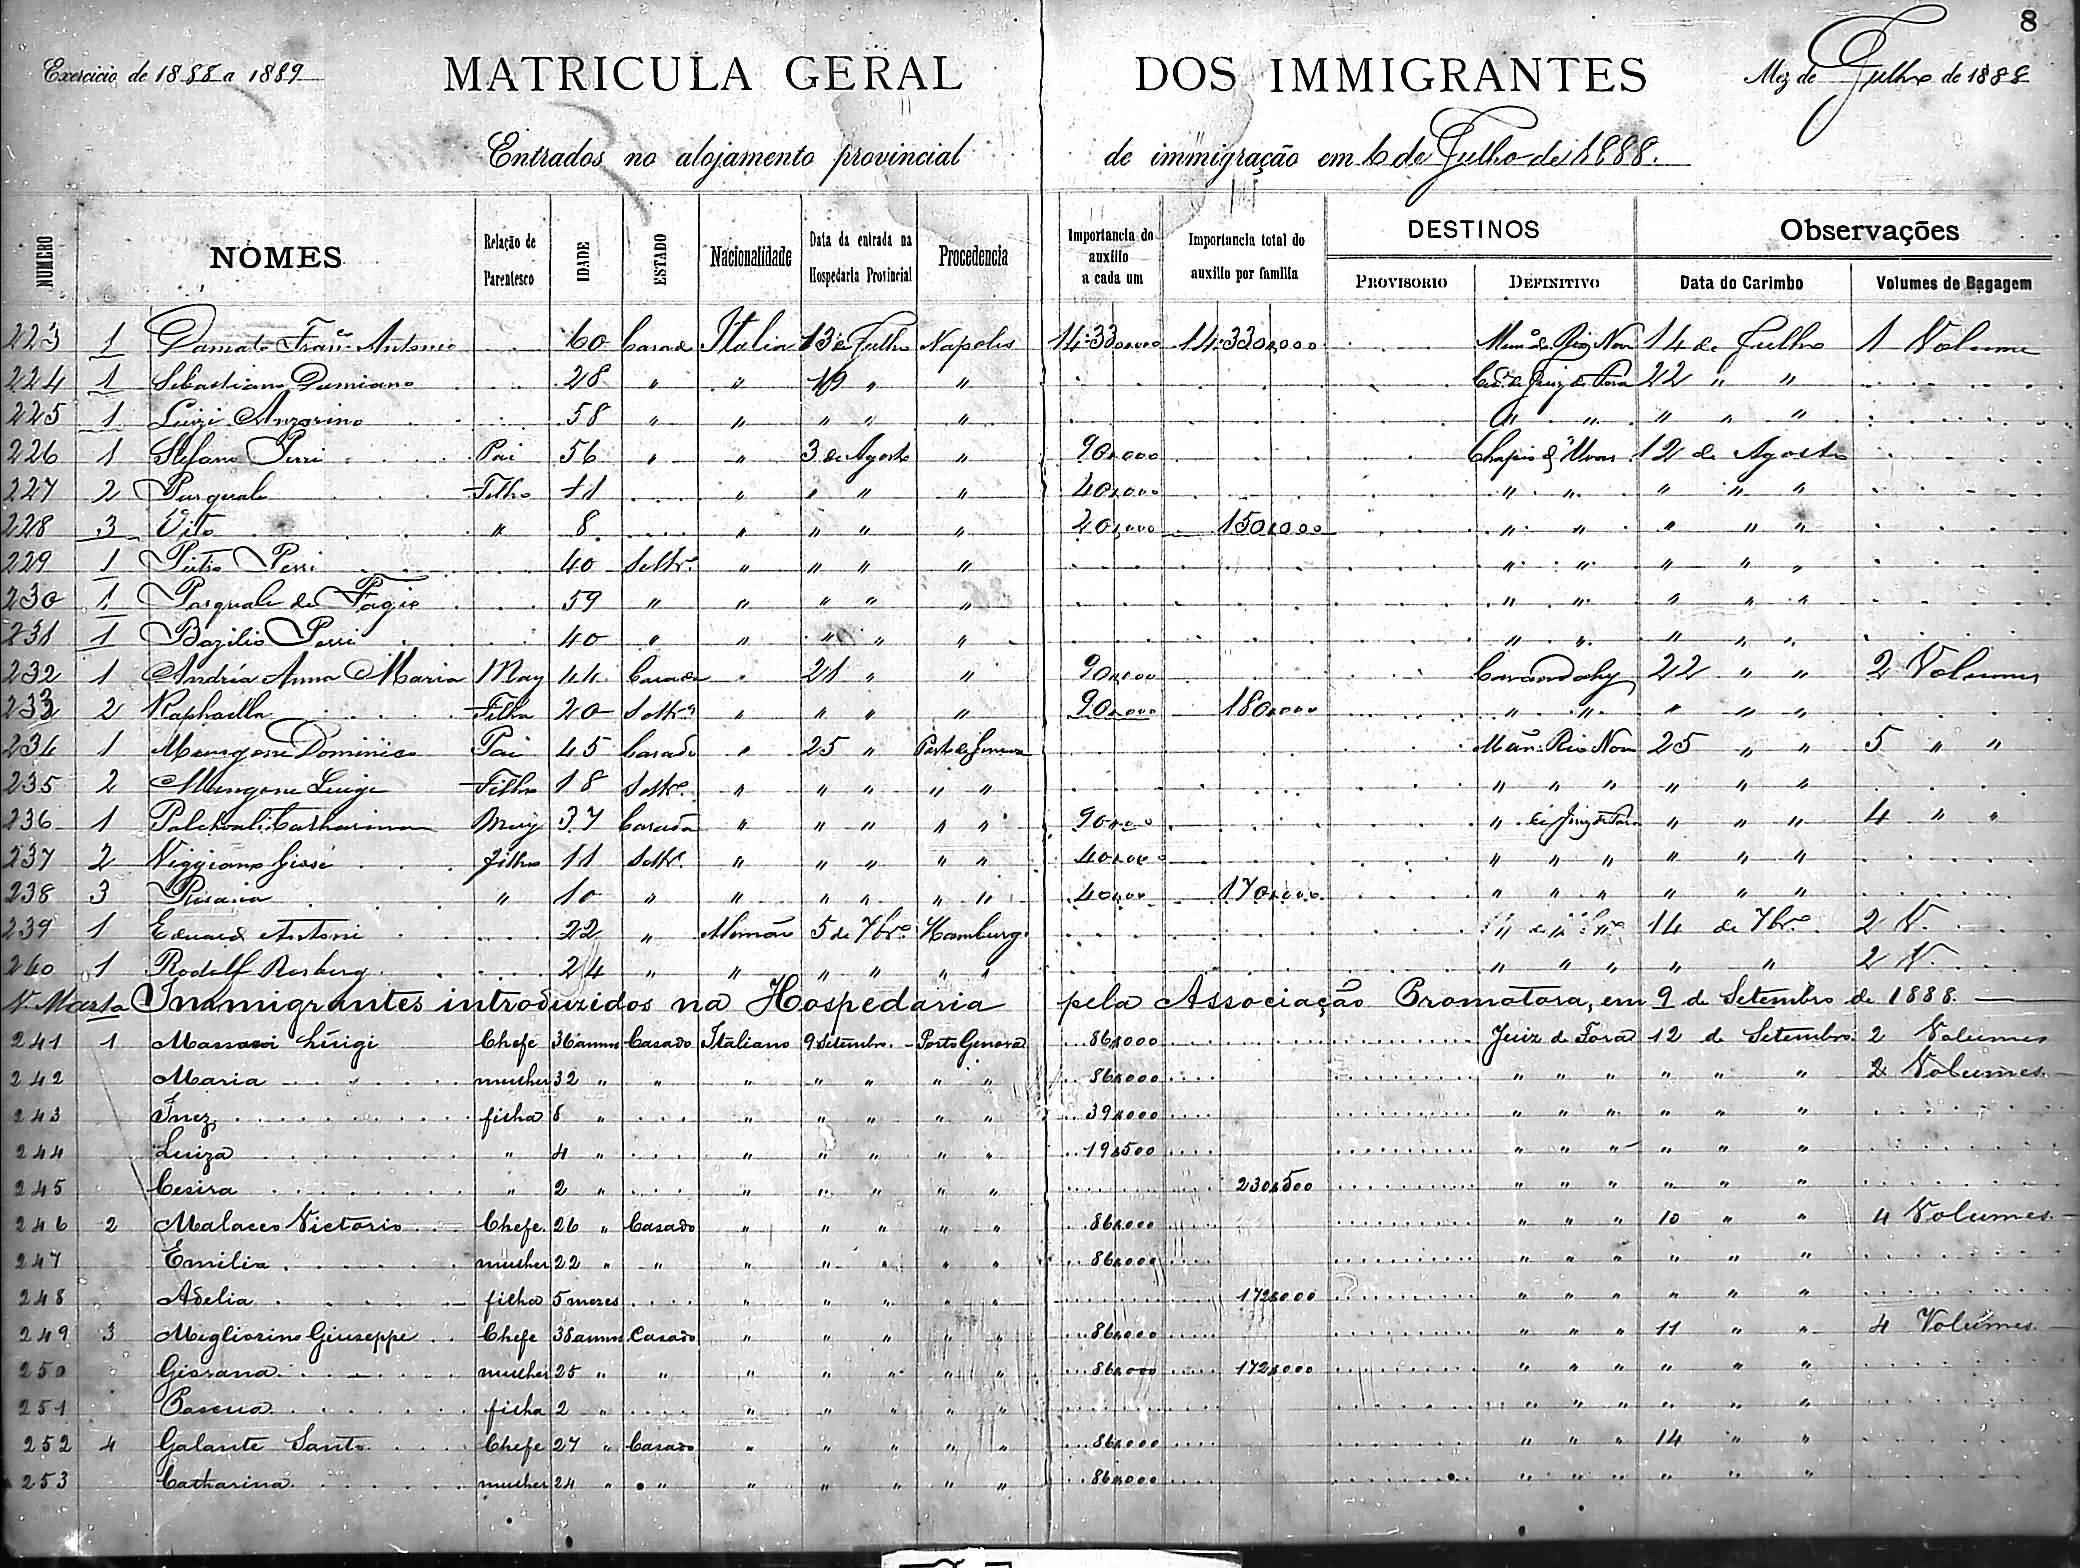 8
Exercicio de 1888 a 1889 MATRICULA GERAL DOS IMMIGRANTES Mez de Julho de 1888
Entrados no alojamento provincial de immigração em 6 de Julho de 1888.
NUMERO NOMES Relação de Parentesco IDADE ESTADO Nacionalidade Data da entrada na Hospedaria Provincial Procedencia Importancia do auxilio a cada um Importancia total do auxilio por familia DESTINOS Observações
PROVISORIO DEFINITIVO Data do Carimbo Volumes de Bagagem
223 1 Damato Antonio 60 Casado Italia 13 Julho Napolis 14 de Julho 1 Volume
224 1 Sebastiano Damiano 28 " " " " 22 " "
225 1 Luizi 58 " " " " " " " " " " "
226 1 Stefano Perri Pai 56 " " 3 de Agosto " 90,000 12 de Agosto
227 2 Pasquale Filho 11 " " " " 40,000 " " " " "
228 3 Vito " 8 " " " " 20,000 150,000 " " " " "
229 1 Pietro Perri 40 Soltr.º " " " " " " " " "
230 1 Pasquale de Fagio 59 " " " " " " " " " "
231 1 Bazilio Perri 40 " " " " " " " " " "
232 1 Andréa Anna Maria May 44 Casada " 21 " " 90,000 Carandahy 22 " " 2 Volumes
233 2 Raphaella Filha 20 Soltr.ª " " " " 90,000 180,000 " " " " "
234 1 Mungone Dominico Pai 45 Casado " 25 " Porto de Genova Rio Novo 25 " " 5 " "
235 2 Mungone Luigi Filho 18 Soltr.º " " " " " " " " " " "
236 1 Catharina May 37 Casada " " " " " 90,000 " " " " 4 " "
237 2 Viggiano José Filho 11 Soltr.º " " " " " 40,000 " " " " " "
238 3 Rosaria " 10 " " " " " " 40,000 170,000 " " " " " "
239 1 Eduard Antoni 22 " Alemão 5 de 7br.º Hamburg 14 de 7br.º 2 V.
240 1 Rodolf Rosberg 24 " " " " " " " " " " " 2 V.
Immigrantes introduzidos na Hospedaria pela Associação Promotora, em 9 de Setembro de 1888.
241 1 Massoni Luigi Chefe 36 annos Casado Italiano 9 Setembro Porto Genova 86,000 Juiz de Fora 12 de Setembro 2 Volumes
242 Maria mulher 32 " " " " " " " 86,000 " " " " " " 2 Volumes
243 Inez filha 8 " " " " " " 39,000 " " " " " "
244 Luiza " 4 " " " " " " 19,500 " " " " " "
245 Cesira " 2 " " " " " " 230,500 " " " " " "
246 2 Malacco Victorio Chefe 26 " Casado " " " " " 86,000 " " " 10 " " 4 Volumes
247 Emilia mulher 22 " " " " " " " 86,000 " " " " " "
248 Adelia filha 5 mezes " " " " " 172,000 " " " " " "
249 3 Megliorino Giuseppe Chefe 38 annos Casado " " " " " 86,000 " " " 11 " " 4 Volumes
250 Giovana mulher 25 " " " " " " " 86,000 172,000 " " " " " "
251 Pascua filha 2 " " " " " " " " " " " "
252 4 Galante Santo Chefe 27 " Casado " " " " " 86,000 " " " 14 " "
253 Catharina mulher 24 " " " " " " " 86,000 " " " " " "